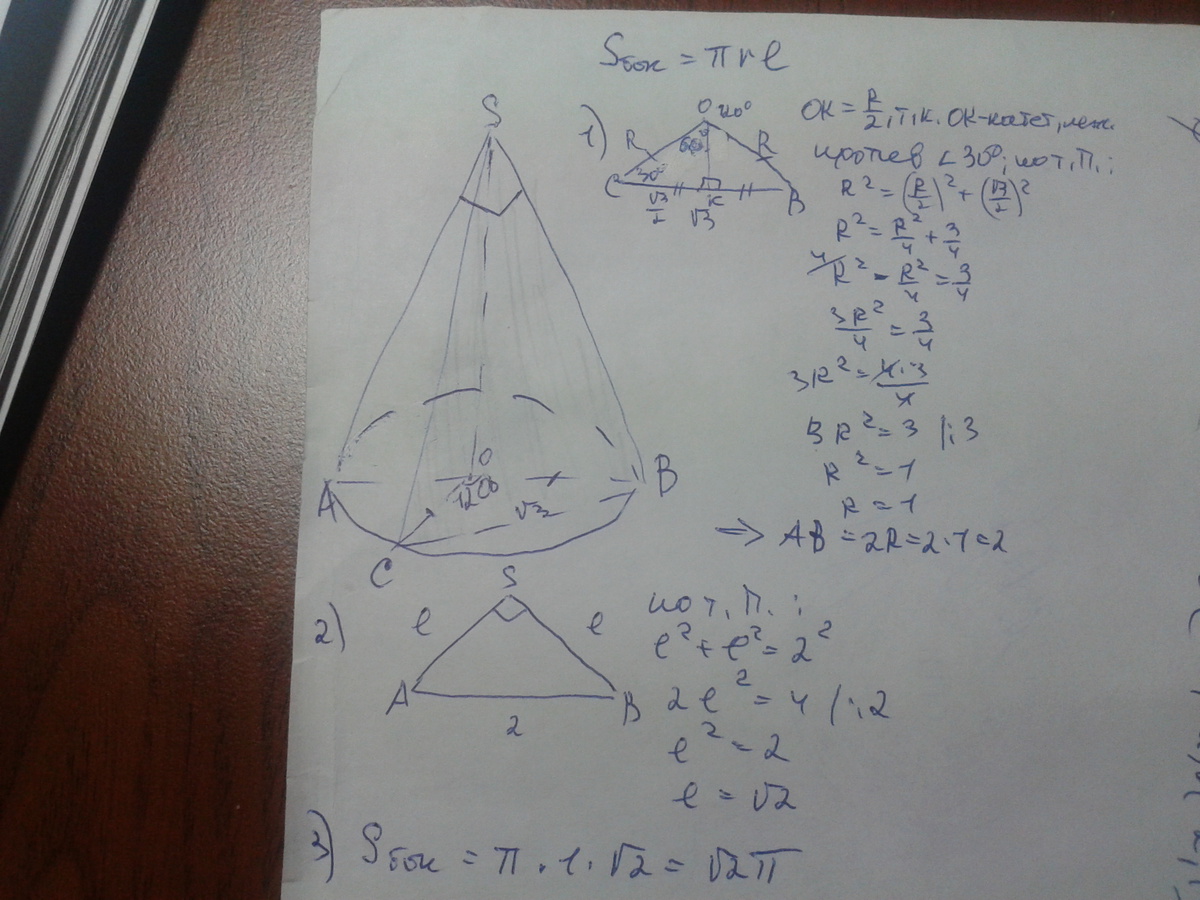 Sбок = πrl
S
1)
O 120°
R
60°
R
C
30°
K
B
√3/2
√3
OK = R/2, т.к. OK-катет, леж.
против ∠30°; по т.П.:
R² = (R/2)² + (√3/2)²
R² = R²/4 + 3/4
4/ R² - R²/4 = 3/4
3R²/4 = 3/4
3R² = 4·3/4
3R² = 3 |:3
R² = 1
R = 1
=> AB = 2R = 2·1 = 2
A
O
120°
B
√3
C
2)
S
l
l
A
B
2
по т.П.:
l² + l² = 2²
2l² = 4 /:2
l² = 2
l = √2
3) Sбок = π·1·√2 = √2π